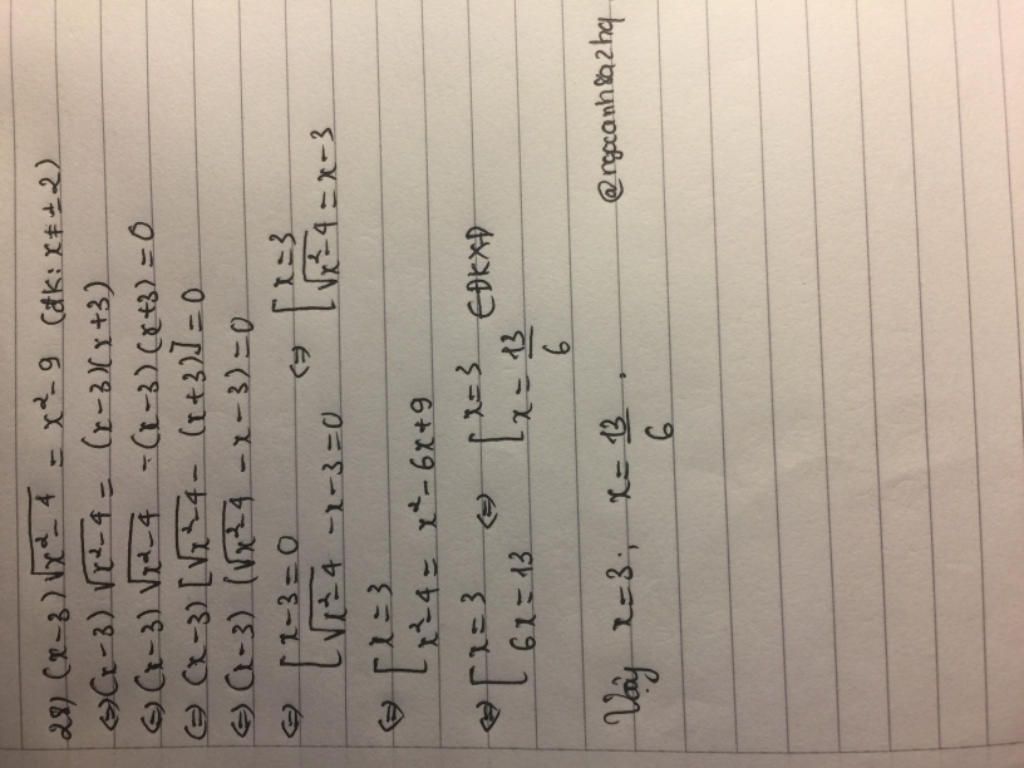 28) (x-3)√(x²-4) = x²-9 (đk: x≠±2)
⇔ (x-3)√(x²-4) = (x-3)(x+3)
⇔ (x-3)√(x²-4) - (x-3)(x+3) = 0
⇔ (x-3)[√(x²-4) - (x+3)] = 0
⇔ (x-3)(√(x²-4) - x-3) = 0
⇔ [x-3=0 ⇔ [x=3
[√(x²-4) -x-3=0 [√(x²-4) = x-3
⇔ [x=3
[x²-4 = x²-6x+9
⇔ [x=3 ⇔ [x=3
[6x=13 [x=13/6
Vậy x=3; x=13/6.
@ngocanh8a2hq